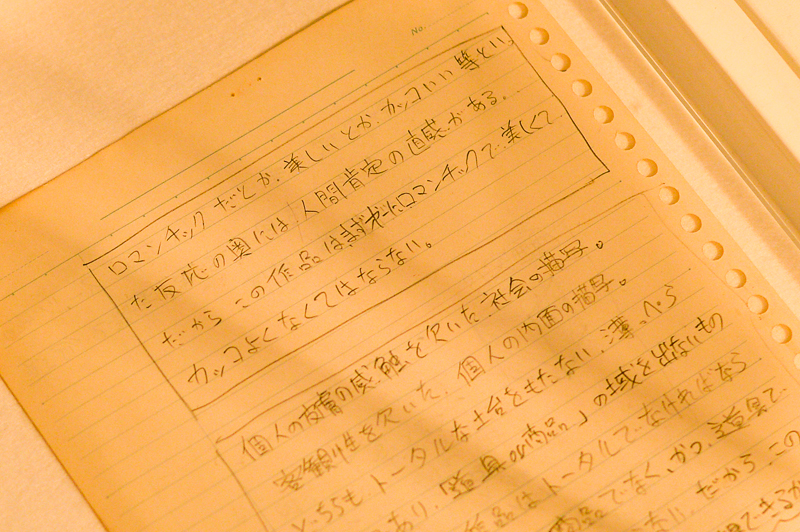 No.
ロマンチックだとか、美しいとか、カッコいい等といっ
た反応の奥には人間肯定の直感がある。
だからこの作品はまずロマンチックで、美しくて、
カッコよくなくてはならない。
個人の皮膚の感触を欠いた社会の描写。
客観性を欠いた、個人の内面の描写。
どちらも、トータルな土台をもたない、薄っぺら
であり、「道具or商品」の域を出ないもの
作品はトータルでなければなら
商品でなく、かつ、道具で
ない。だからこの
できるか